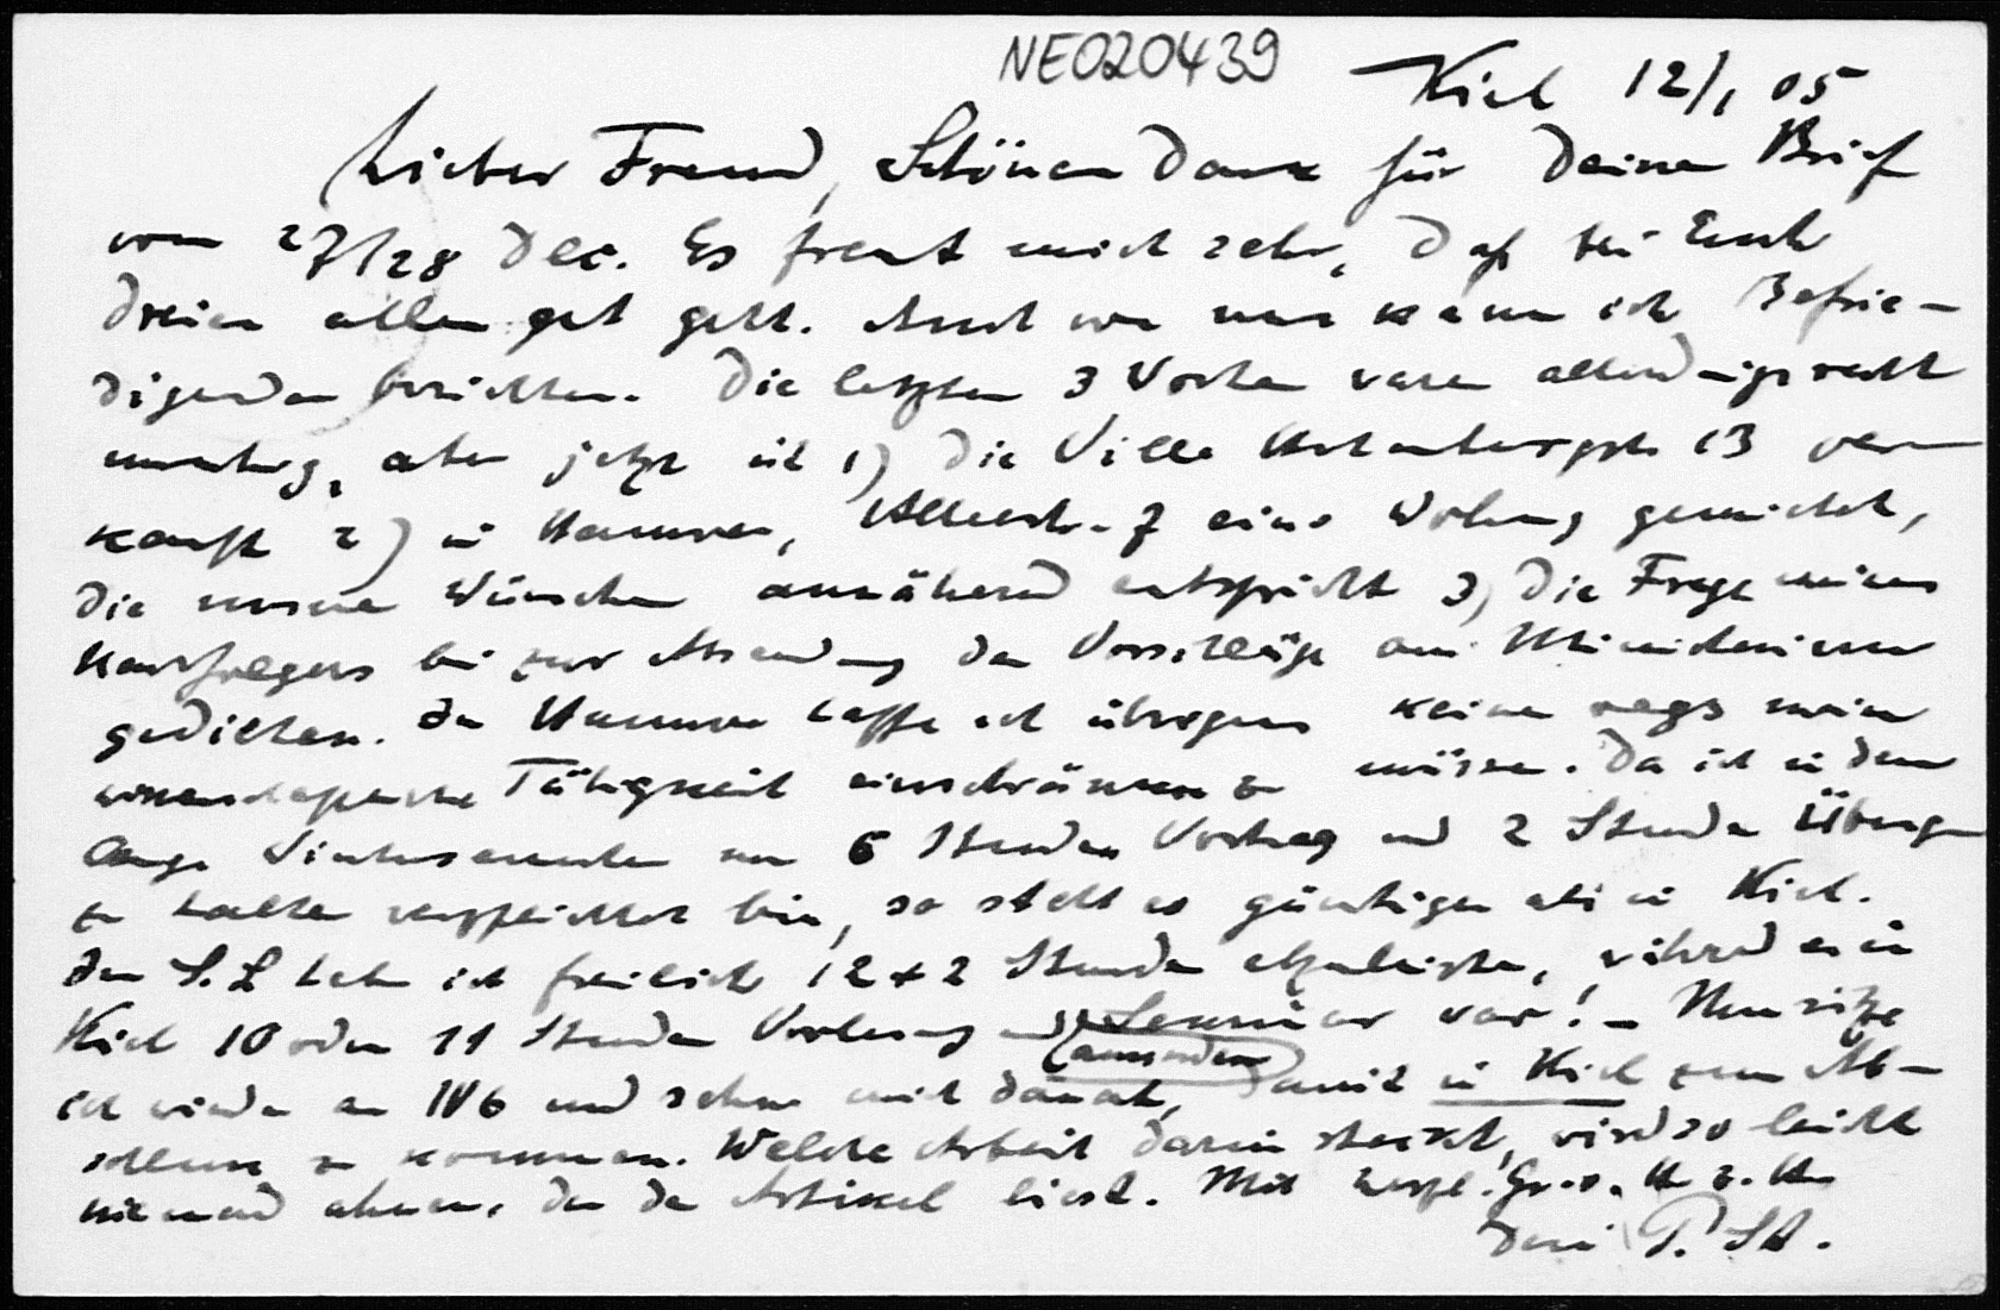 NE020439
Kiel 12/1 05
Lieber Freund, Schönen Dank für Deinen Brief
vom 27/28 Dec. Es freut mich sehr, daß bei Euch
dreien allen gut geht. Auch von uns kann ich Befrie-
digendes berichten. Die letzten 3 Wochen waren allerdings recht
unruhig, aber jetzt ist 1) die Villa 13 ver-
kauft 2) in Hannover, 7 eine Wohnung gemietet,
die unseren Wünschen annähernd entspricht 3) die Frage meines
Nachfolgers bis zur Absendung der Vorschläge ans Ministerium
gediehen. In Hannover hoffe ich übrigens keineswegs meine
wissenschaftliche Tätigkeit einschränken zu müssen. Da ich in dem
langen Wintersemester nur 6 Stunden Vortrag und 2 Stunden Übungen
zu halten verpflichtet bin, so steht es günstiger als in Kiel.
Im S.S. habe ich freilich 12+2 Stunden abzuleisten, während es in
Kiel 10 oder 11 Stunden Vorlesung und Seminar war! – Nun sitze
ich wieder an IV6 und sehne mich danach, damit in Kiel zum Ab-
schluss zu kommen. Welche Arbeit darin steckt, wird so leicht
niemand ahnen, der den Artikel liest. Mit herzl. Gr. v. H. z. H.
Dein P. St.